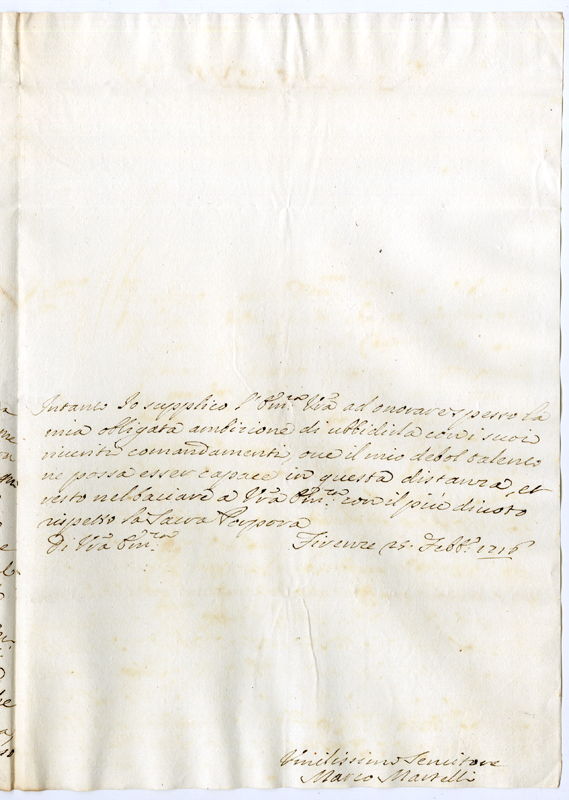 Intanto Io supplico l'Em.za Vra ad onorare spesso la
mia obligata ambizione di ubbidirla con i suoi
riveriti comandamenti, ove il mio debol talento
ne possa esser capace in questa distanza, et
resto nel baciare a Vra Em.za con il più divoto
rispetto la Sacra Porpora
Di Vra Em.za Firenze 25 Febb.o 1716
Umilissimo Servitore
Marco Martelli